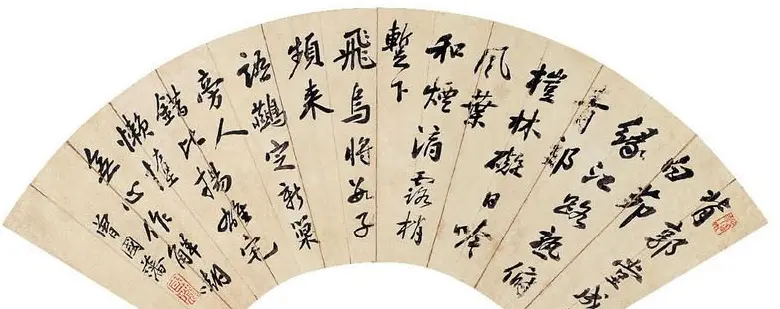 背郭堂成
白茅
緣江路熟俯
青郊
榿林礙日吟
風葉
和煙滴露梢
暫下
飛烏將數子
頻来
語鷰定新巢
旁人
錯比揚雄宅
懶惰
無心作解嘲
曾國藩